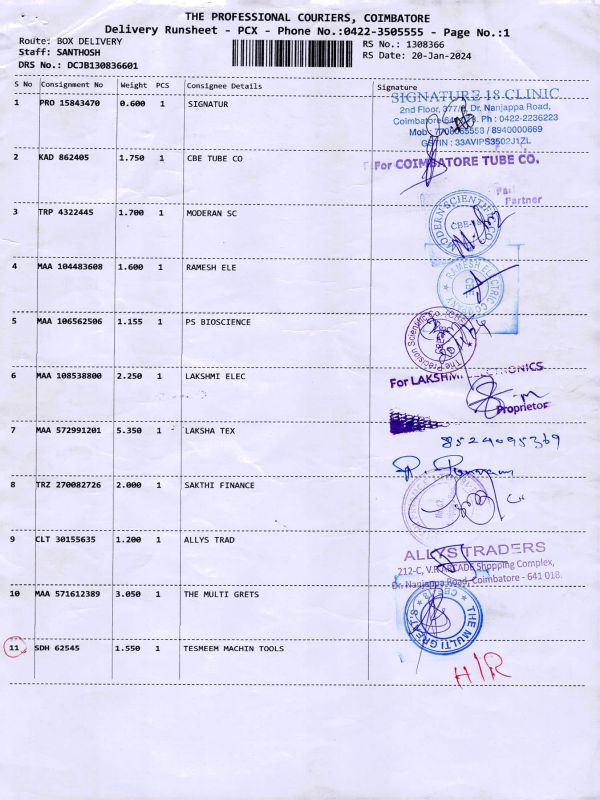 THE PROFESSIONAL COURIERS, COIMBATORE
Delivery Runsheet - PCX - Phone No.:0422-3505555 - Page No.:1
Route: BOX DELIVERY
Staff: SANTHOSH
DRS No.: DCJB130836601
RS No.: 1308366
RS Date: 20-Jan-2024
S No Consignment No Weight PCS Consignee Details Signature
1 PRO 15843470 0.600 1 SIGNATUR
SIGNATURE 18 CLINIC
2nd Floor, 377/ Dr. Nanjappa Road,
Coimbatore Ph : 0422-2236223
Mob / 8940000669
GSTIN : 33AVIPS3502J1ZL
2 KAD 862405 1.750 1 CBE TUBE CO
For COIMBATORE TUBE CO.
Partner
3 TRP 4322445 1.700 1 MODERAN SC
MODERN SCIENTIFIC CO
CBE-18
4 MAA 104483608 1.600 1 RAMESH ELE
RAMESH ELECTRIC COMPANY
CBE
5 MAA 106562506 1.155 1 PS BIOSCIENCE
The Precision Scientific Co. (CBE)
6 MAA 108538800 2.250 1 LAKSHMI ELEC
For LAKSHMI ELECTRONICS
Proprietor
7 MAA 572991201 5.350 1 LAKSHA TEX
8524095369
8 TRZ 270082726 2.000 1 SAKTHI FINANCE
9 CLT 30155635 1.200 1 ALLYS TRAD
ALLYS TRADERS
212-C, V.R. ARCADE Shopping Complex,
Dr. Nanjappa Road, Coimbatore - 641 018.
10 MAA 571612389 3.050 1 THE MULTI GRETS
THE MULTI GREAT'S
CBE-18
11 SDH 62545 1.550 1 TESMEEM MACHIN TOOLS
H/R